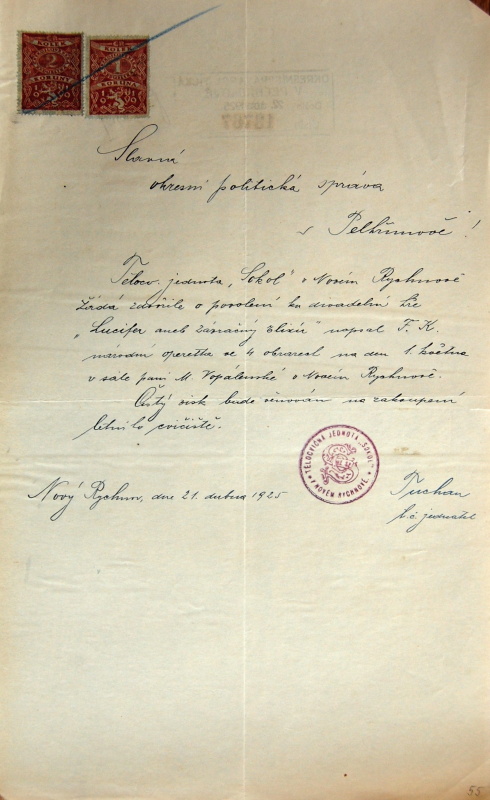 KOLEK
2
KORUNY
KOLEK
1
KORUNA
Slavná
okresní politická správa
v Pelhřimově!
Tělocv. jednota „Sokol" v Novém Rychnově
žádá zdvořile o povolení ku divadelní hře
„Lucifer aneb Zázračný Elixír" napsal F. K.
národní operetka ve 4 obrazech na den 1. května
v sále paní M. Vopálenské v Novém Rychnově.
Čistý zisk bude věnován na zakoupení
letního cvičiště.
TĚLOCVIČNÁ JEDNOTA „SOKOL"
V NOVÉM RYCHNOVĚ.
Nový Rychnov, dne 21. dubna 1925
Tuchan
t. č. jednatel
55